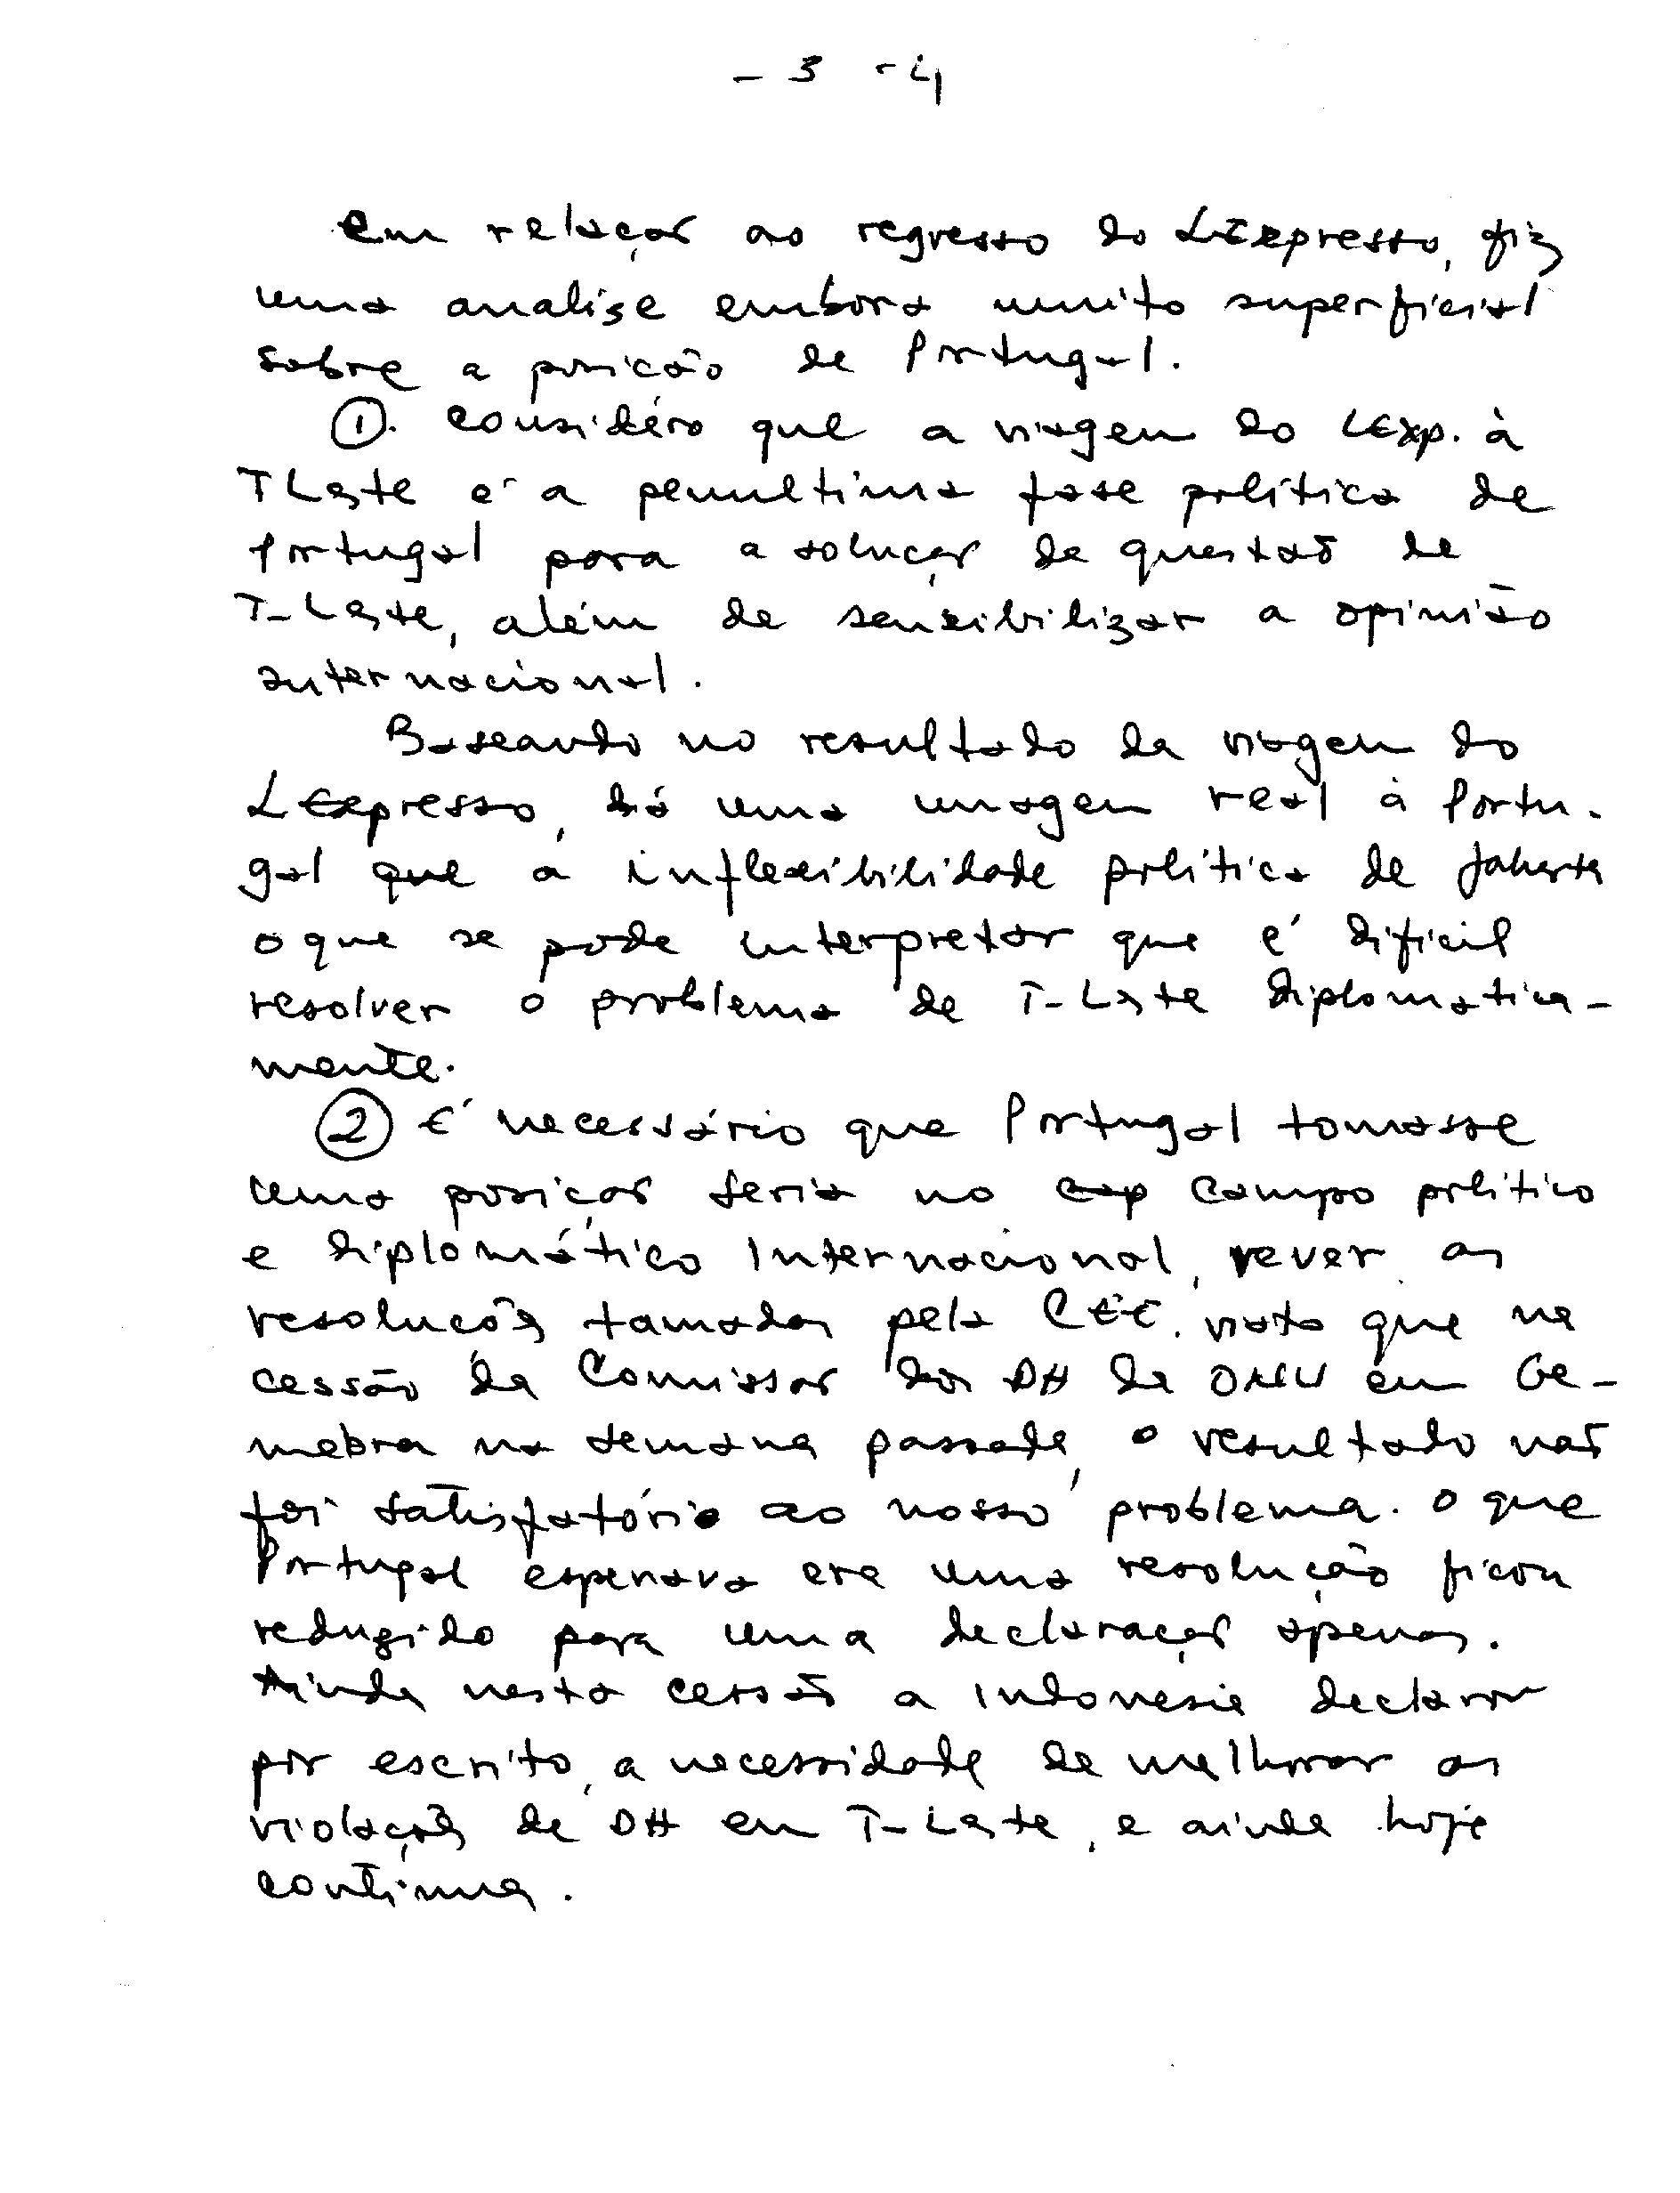 - 3 - 4
em relação ao regresso do LExpresso, fiz
uma analise embora muito superficial
sobre a posicão de Portugal.
①. considéro que a viagem do LExp. à
TLeste e' a penultima fase politica de
Portugal para a solução da questaõ de
T-Leste, além de sensibilizar a opinião
internacional.
Baseando no resultado da viagem do
LExpresso, dá uma imagem real à Portu-
gal que a inflexibilidade politica de Jakarta
o que se pode interpretar que e' dificil
resolver o problema de T-Leste diplomatica-
mente.
② E' necessário que Portugal tomasse
uma posição seria no campo politico
e diplomático Internacional, rever as
resoluções tomadas pela CEE. visto que na
cessão da Comissão dos DH da ONU em Ge-
nebra na semana passada, o resultado naõ
foi satisfatório ao nosso problema. o que
Portugal esperava era uma resolução ficou
reduzido para uma declaração apenas.
Ainda nesta cessaõ a Indonesia declarou
por escrito, a necessidade de melhorar as
violações de DH em T-Leste, e ainda hoje
continua.